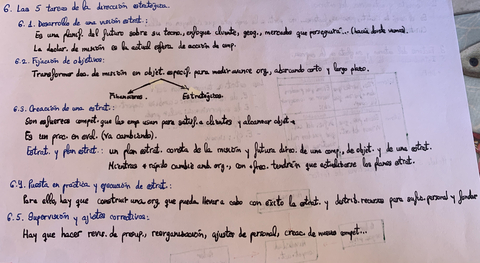 6. Las 5 tareas de la dirección estratégica.
6.1. Desarrollo de una visión estrat.:
Es una planif. del futuro sobre su tecno., enfoque cliente, geog., mercados que perseguirá... (hacia donde vamos).
La declar. de misión es la actual esfera de acción de emp.
6.2. Fijación de objetivos:
Transformar dec. de misión en objet. específ. para medir avance org., abarcando corto y largo plazo.
Financieros. Estratégicos.
6.3. Creación de una estrat.:
Son esfuerzos compet. que las emp usan para satisf. a clientes y alcanzar objet.
Es un proc. en evol. (va cambiando).
Estrat. y plan estrat.: un plan estrat. consta de la misión y futura direc. de una comp., de objet. y de una estrat.
Mientras + rápido cambie amb org., con + frec. tendrán que establecerse los planes strat.
6.4. Puesta en práctica y ejecución de estrat.:
Para ello, hay que construir una org que pueda llevar a cabo con éxito la estrat. y distrib. recursos para sufic. personal y fondos
6.5. Supervisión y ajustes correctivos:
Hay que hacer revis. de presup., reorganización, ajustes de personal, creac. de nuevas compet...